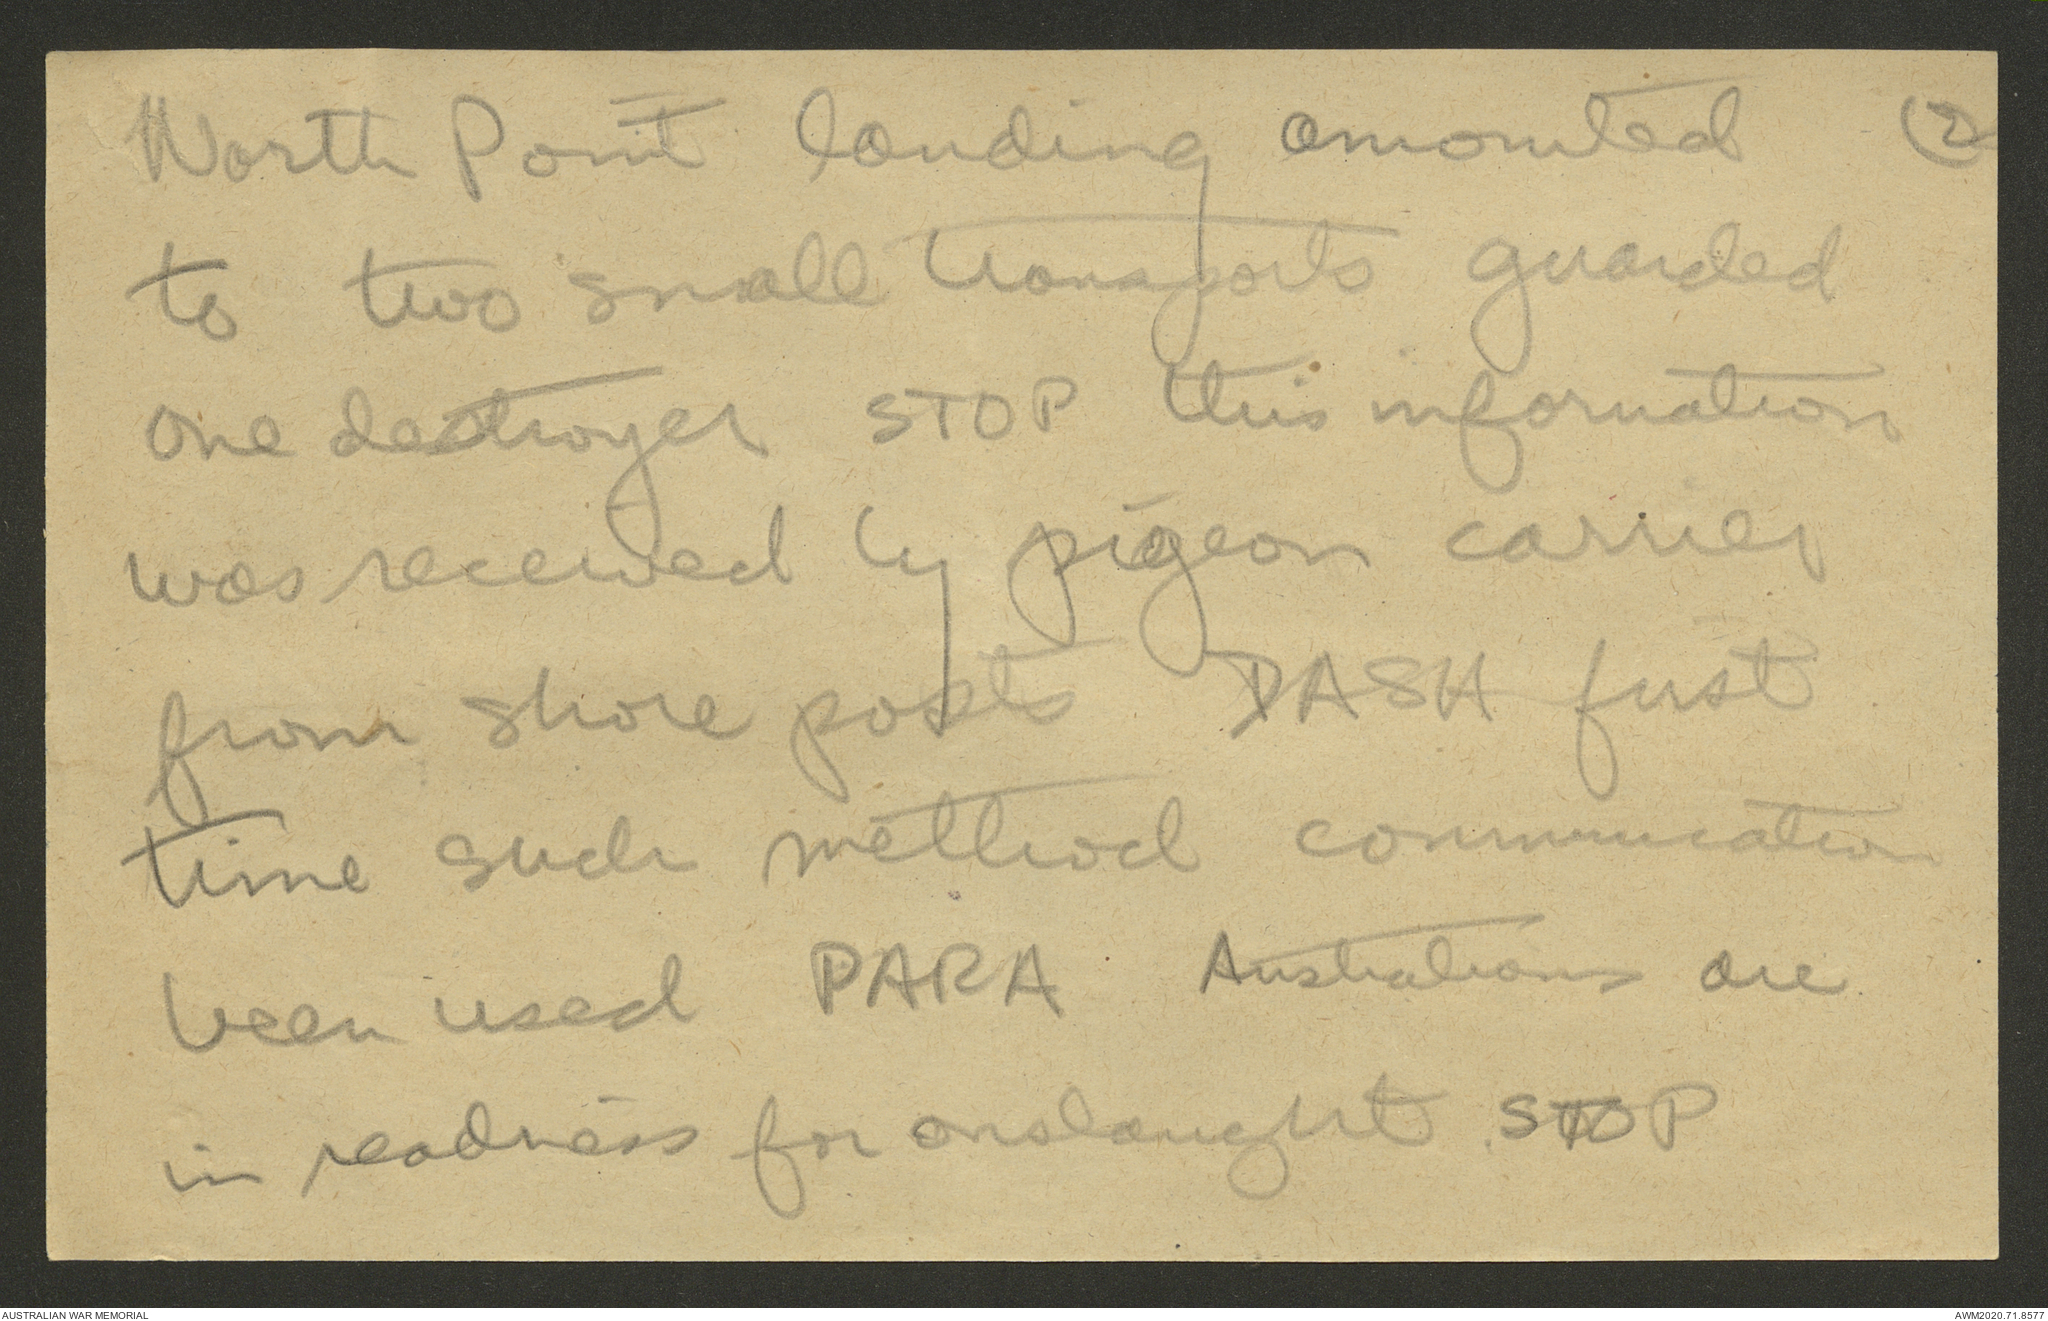 North Point landing amounted (2
to two small transports guarded
one destroyer STOP this information
was received by pigeon carrier
from shore posts DASH first
time such method communication
been used PARA Australians are
in readness for onslaught STOP
AUSTRALIAN WAR MEMORIAL AWM2020.71.8577